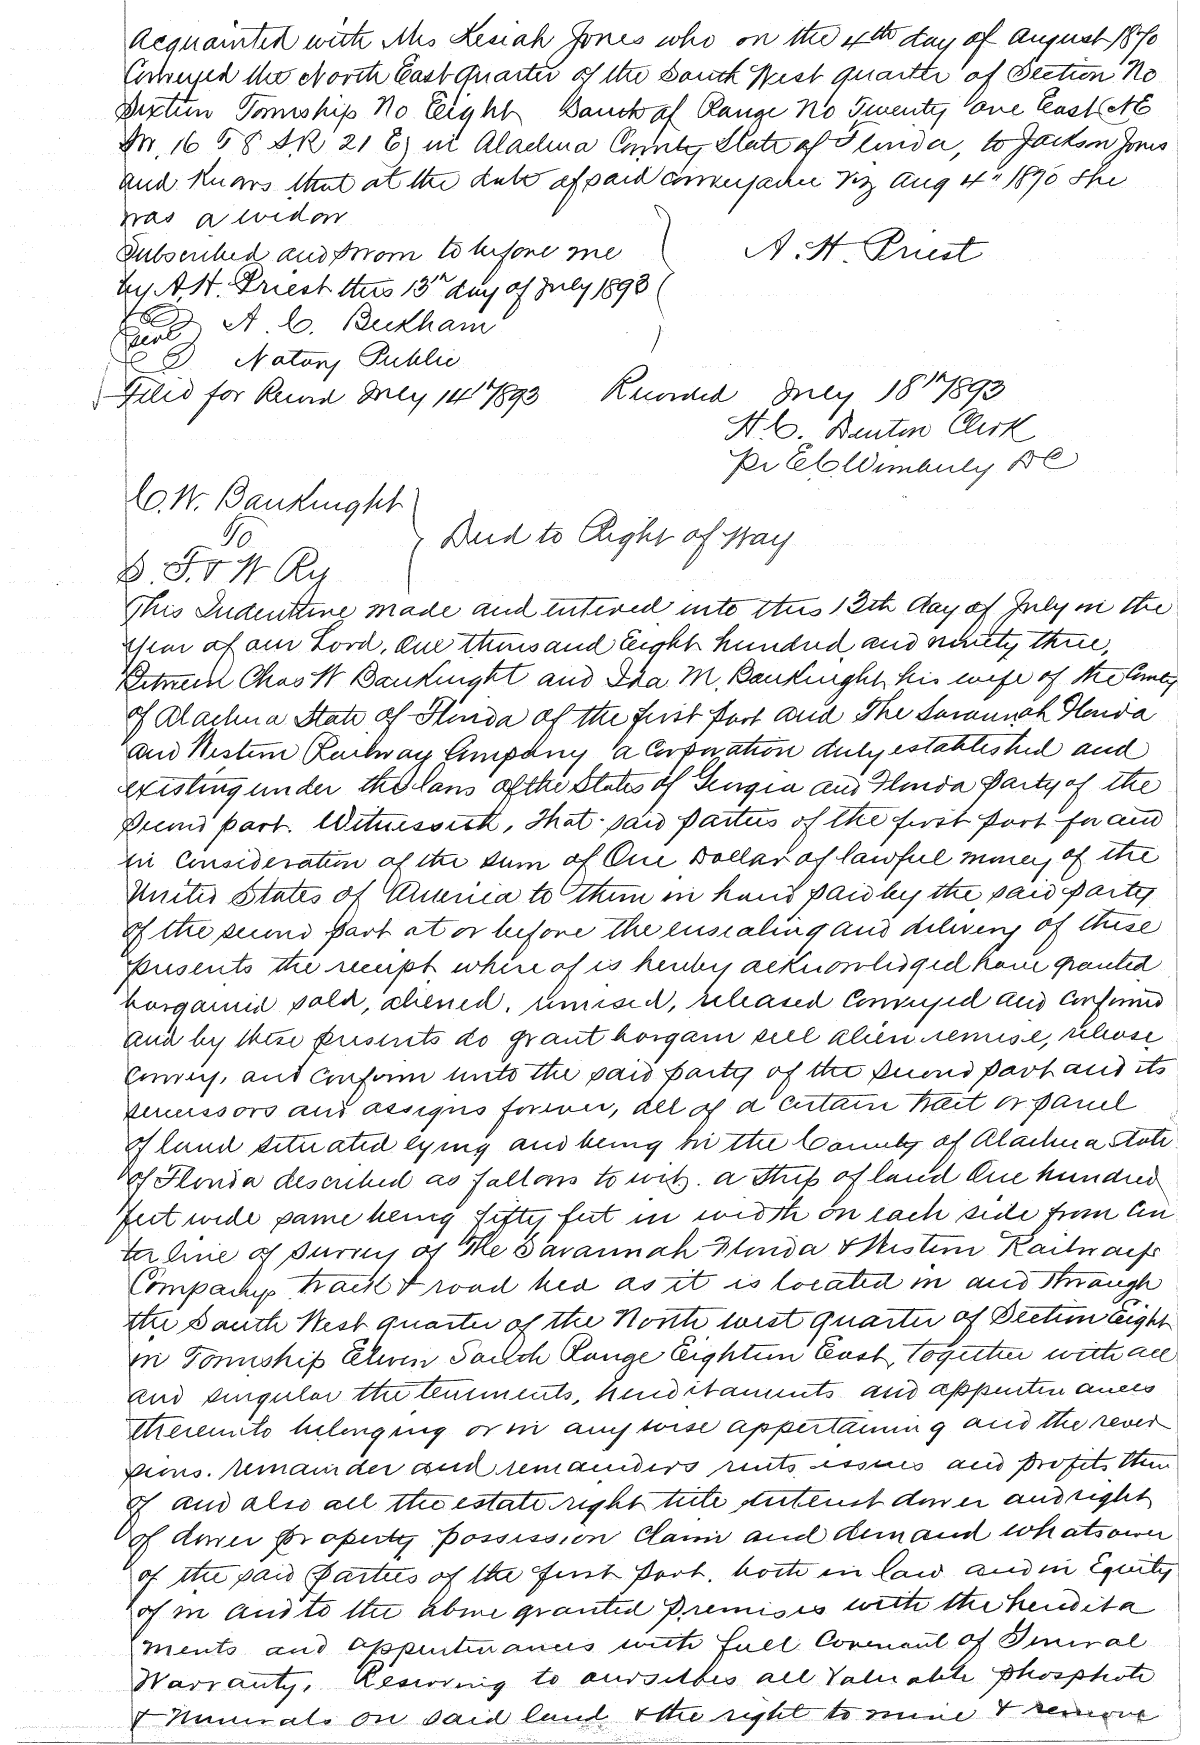 Acquainted with Mrs Kesiah Jones who on the 4th day of August 1870
Conveyed the North East quarter of the South West quarter of Section No
Sixteen Township No Eight South of Range No Twenty one East (NE
16 T 8 S R 21 E) in Alachua County State of Florida, to Jackson Jones
and knows that at the date of said conveyance viz Aug 4" 1870 she
was a widow
Subscribed and sworn to before me
A. H. Priest
by A. H. Priest this 13th day of July 1893
Seal A. C. Beckham
Notary Public
Filed for Record July 14th 1893 Recorded July 18th 1893
H. C. Denton Clerk
pr E C Wimberly DC
C. W. Bauknight
To
Deed to Right of Way
S. F. & W Ry
This Indenture made and entered into this 13th day of July in the
year of our Lord, one thousand Eight hundred and ninety three,
Between Chas W Bauknight and Ida M. Bauknight his wife of the County
of Alachua State of Florida of the first part and The Savannah Florida
and Western Railway Company a Corporation duly established and
existing under the laws of the States of Georgia and Florida party of the
second part. Witnesseth, That said parties of the first part for and
in consideration of the sum of One Dollar of lawful money of the
United States of America to them in hand paid by the said party
of the second part at or before the ensealing and delivery of these
presents the receipt where of is hereby acknowledged have granted
bargained sold, aliened, remised, released conveyed and confirmed
and by these presents do grant bargain sell alien remise, release
convey, and confirm unto the said party of the second part and its
successors and assigns forever, all of a certain tract or parcel
of land situated lying and being in the County of Alachua State
of Florida described as follows to wit. a strip of land One hundred
feet wide same being fifty feet in width on each side from Cen
ter line of survey of The Savannah Florida & Western Railways
Company track & road bed as it is located in and through
the South West quarter of the North west quarter of Section Eight
in Township Eleven South Range Eighteen East, together with all
and singular the tenements, hereditaments and appurtenances
thereunto belonging or in any wise appertaining and the rever
sions. remainder and remainders rents issues and profits there
of and also all the estate right title interest dower and right
of dower property possession claim and demand whatsoever
of the said parties of the first part. both in law and in Equity
of in and to the above granted premises with the heredita
ments and appurtenances with full Covenant of General
Warranty. Reserving to ourselves all valuable phosphate
& Minerals on said land & the right to mine & remove